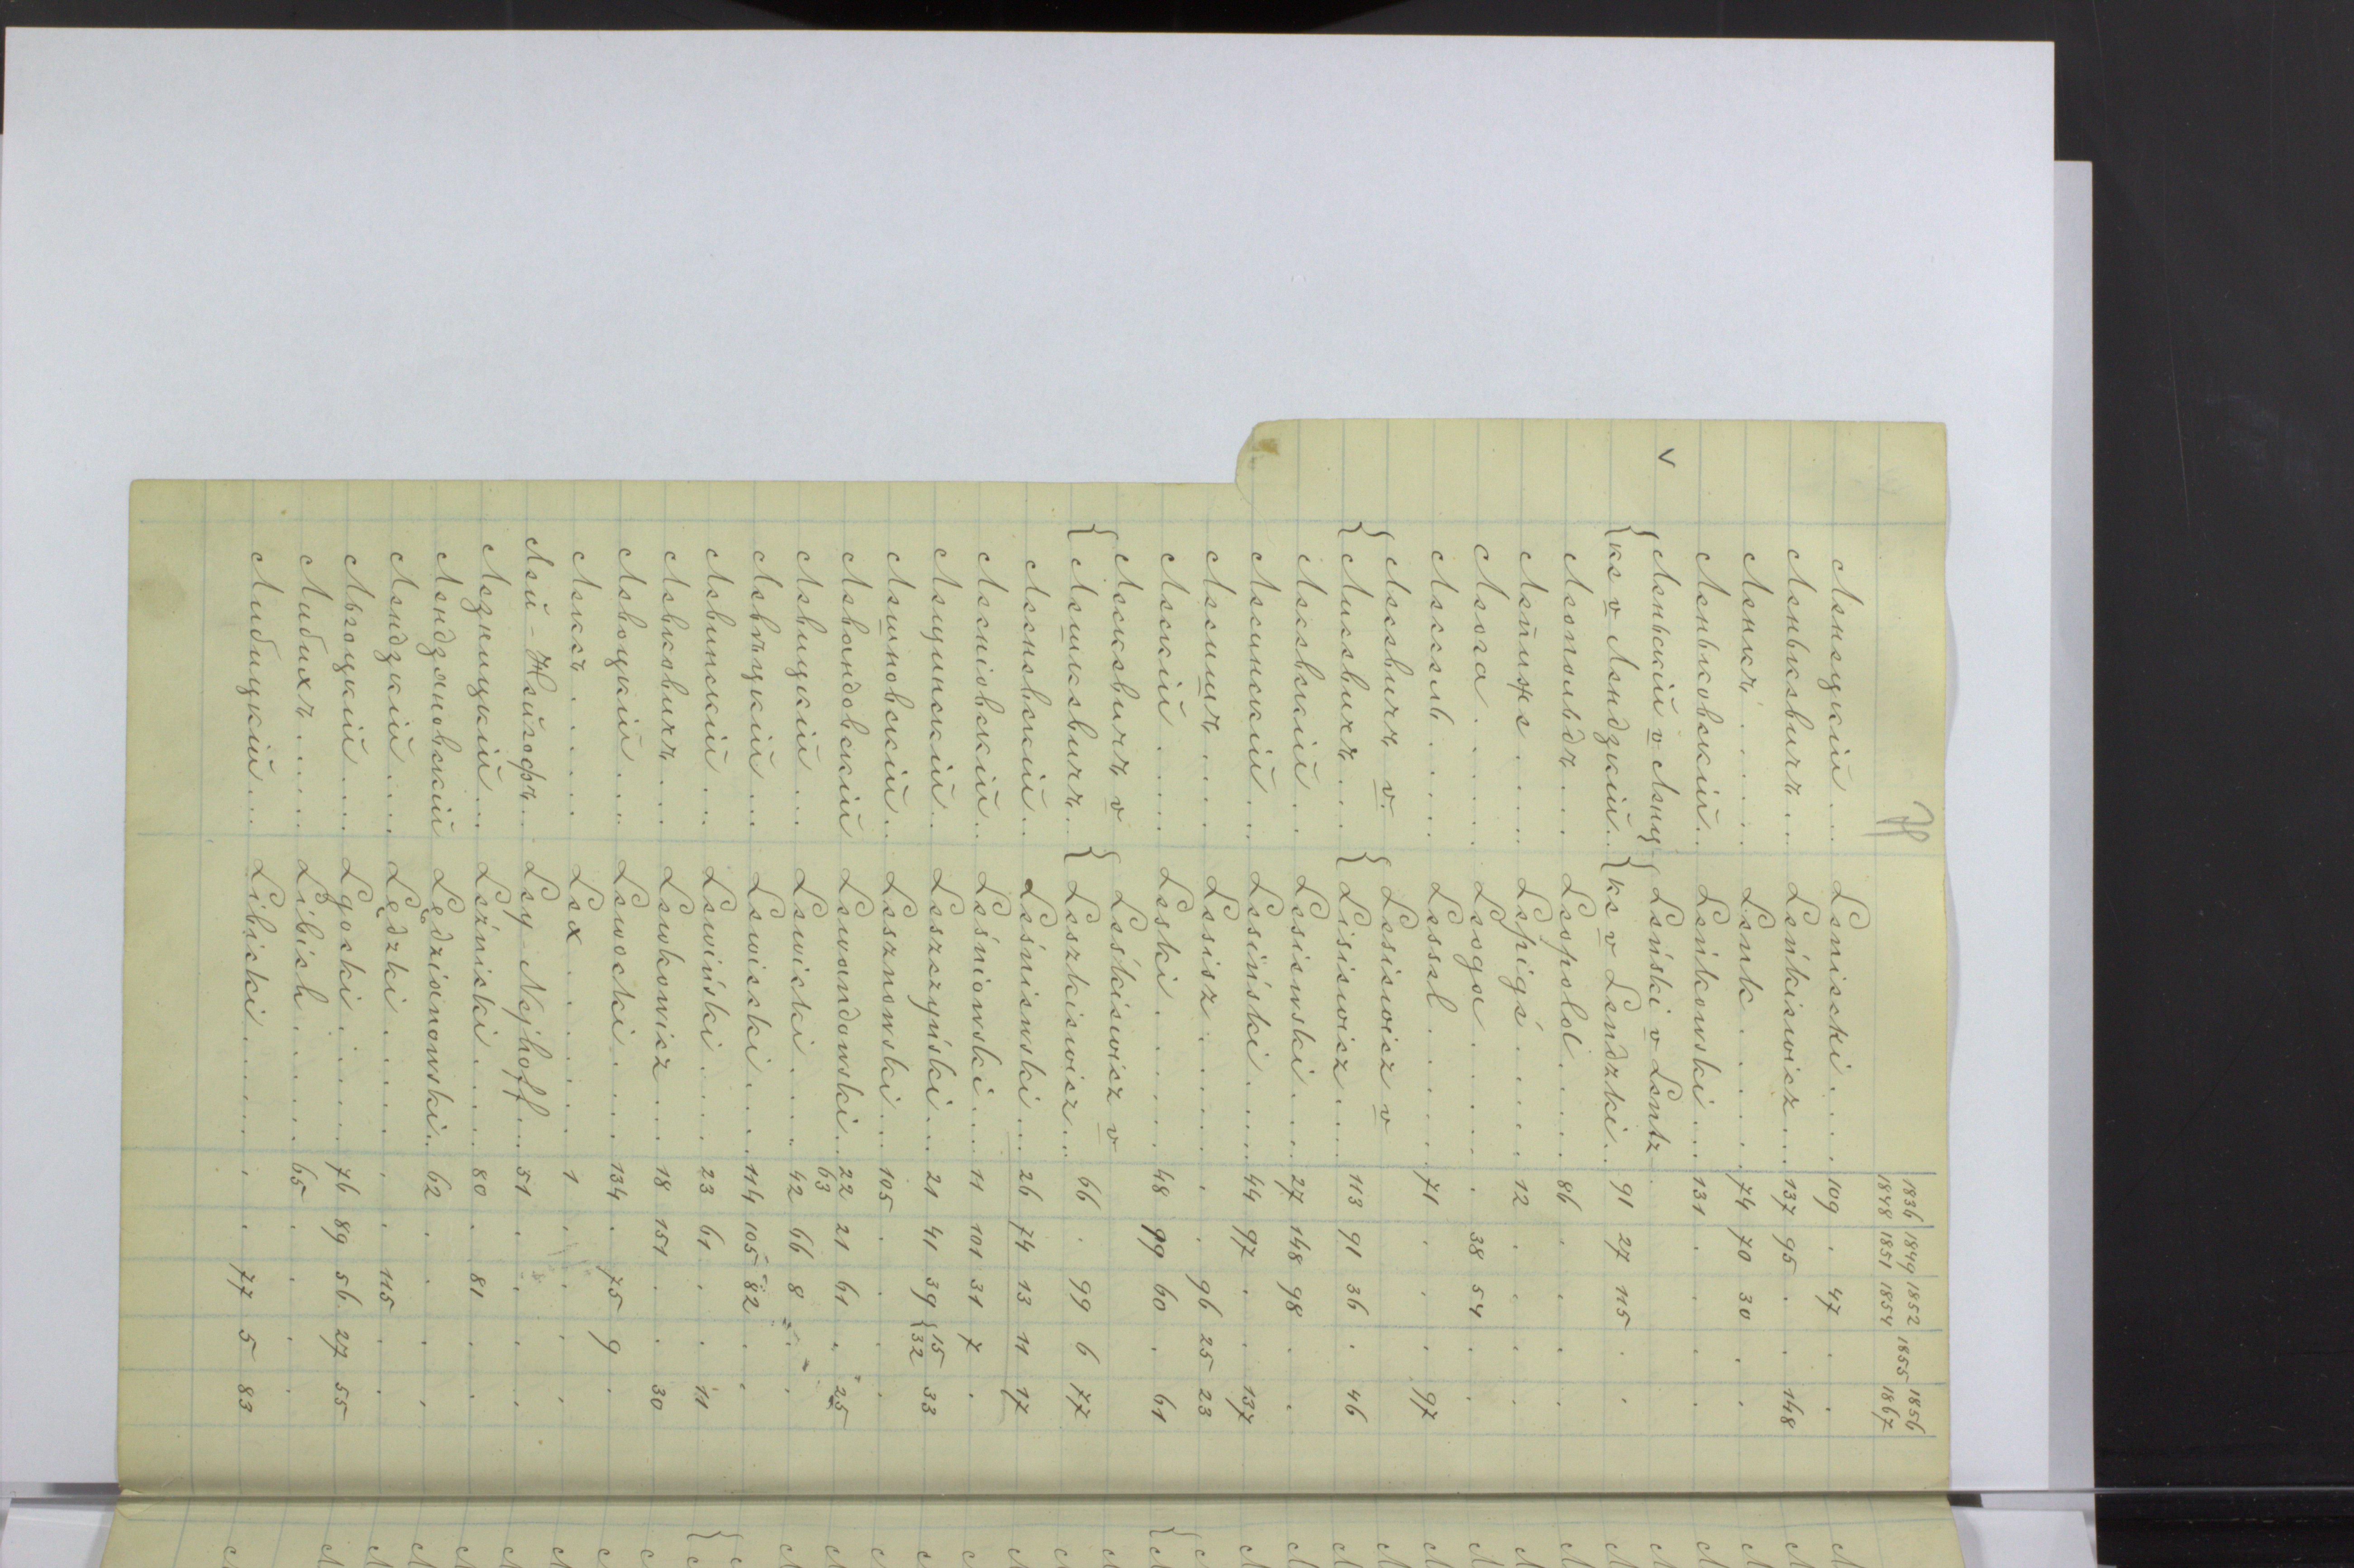 1836 1849 1852 1855 1856
1848 1851 1854 1867
Ленецкій... Leniecki.... 109 . 47 . .
Ленькевичъ... Leńkiewicz... 137 95 . . 148
Ленкъ..... Lenk...... 74 70 30 . .
Леньковскій.. Leńkowski... 131 . . . .
v {Леньскій v Ленц {Leński v Lentz
{ке v Лендзкій... {ke v Lendzki.. 91 27 115 . .
Леопольдъ... Leopold.... 86 . . . .
Лепиже.... Lepigé..... 12 . . . .
Лога..... Loga..... . 38 54 . .
Лессель.... Lessel..... 71 . . . 97
{Лесевичъ v {Lesiewicz v
{Лисевичъ... {Lisiewicz.... 113 91 36 . 46
Лесевскій.. Lesiewski.... 27 148 98 . .
Лесинскій.. Lesiński..... 44 97 . . 137
Лесишъ.... Lesisz...... . . 96 25 23
Лескій.... Leski...... 48 99 60 . 61
{Лескевичъ v {Leśkiewicz v
{Лешкевичъ.. {Leszkiewicz.. 66 . 99 6 77
Лесневскій... Leśniewski... 26 74 13 11 17
Лесніовскій.. Leśniowski... 11 101 31 7 .
Лещинскій.. Leszczyński... 21 41 39 {15 33
32
Лешновскій.. Lesznowski... 105 . . . .
Левандовскій Lewandowski.. 22 21 61 . 25
63
Левицкій... Lewicki.... 42 66 8 . .
Левецкій... Lewiecki.... 114 105 82 . .
Левинскій... Lewiński.... 23 61 . . 11
Левковичъ... Lewkowicz... 18 151 . . 30
Левоцкій... Lewocki.... 134 . 75 9 .
Лексъ..... Lex...... 1 . . . .
Лей-Нейгофъ.. Ley Nejhoff... 51 . . . .
Лезницкій... Leźnicki.... 80 . 81 . .
Лендзяновскій Lędzianowski.. 62 . . . .
Лендзкій... Lędzki..... . . 115 . .
Лгоцкій.... Lgocki..... 76 89 56 27 55
Либихъ.... Libich..... 65 . . . .
Либицкій... Libicki..... . . 77 5 83